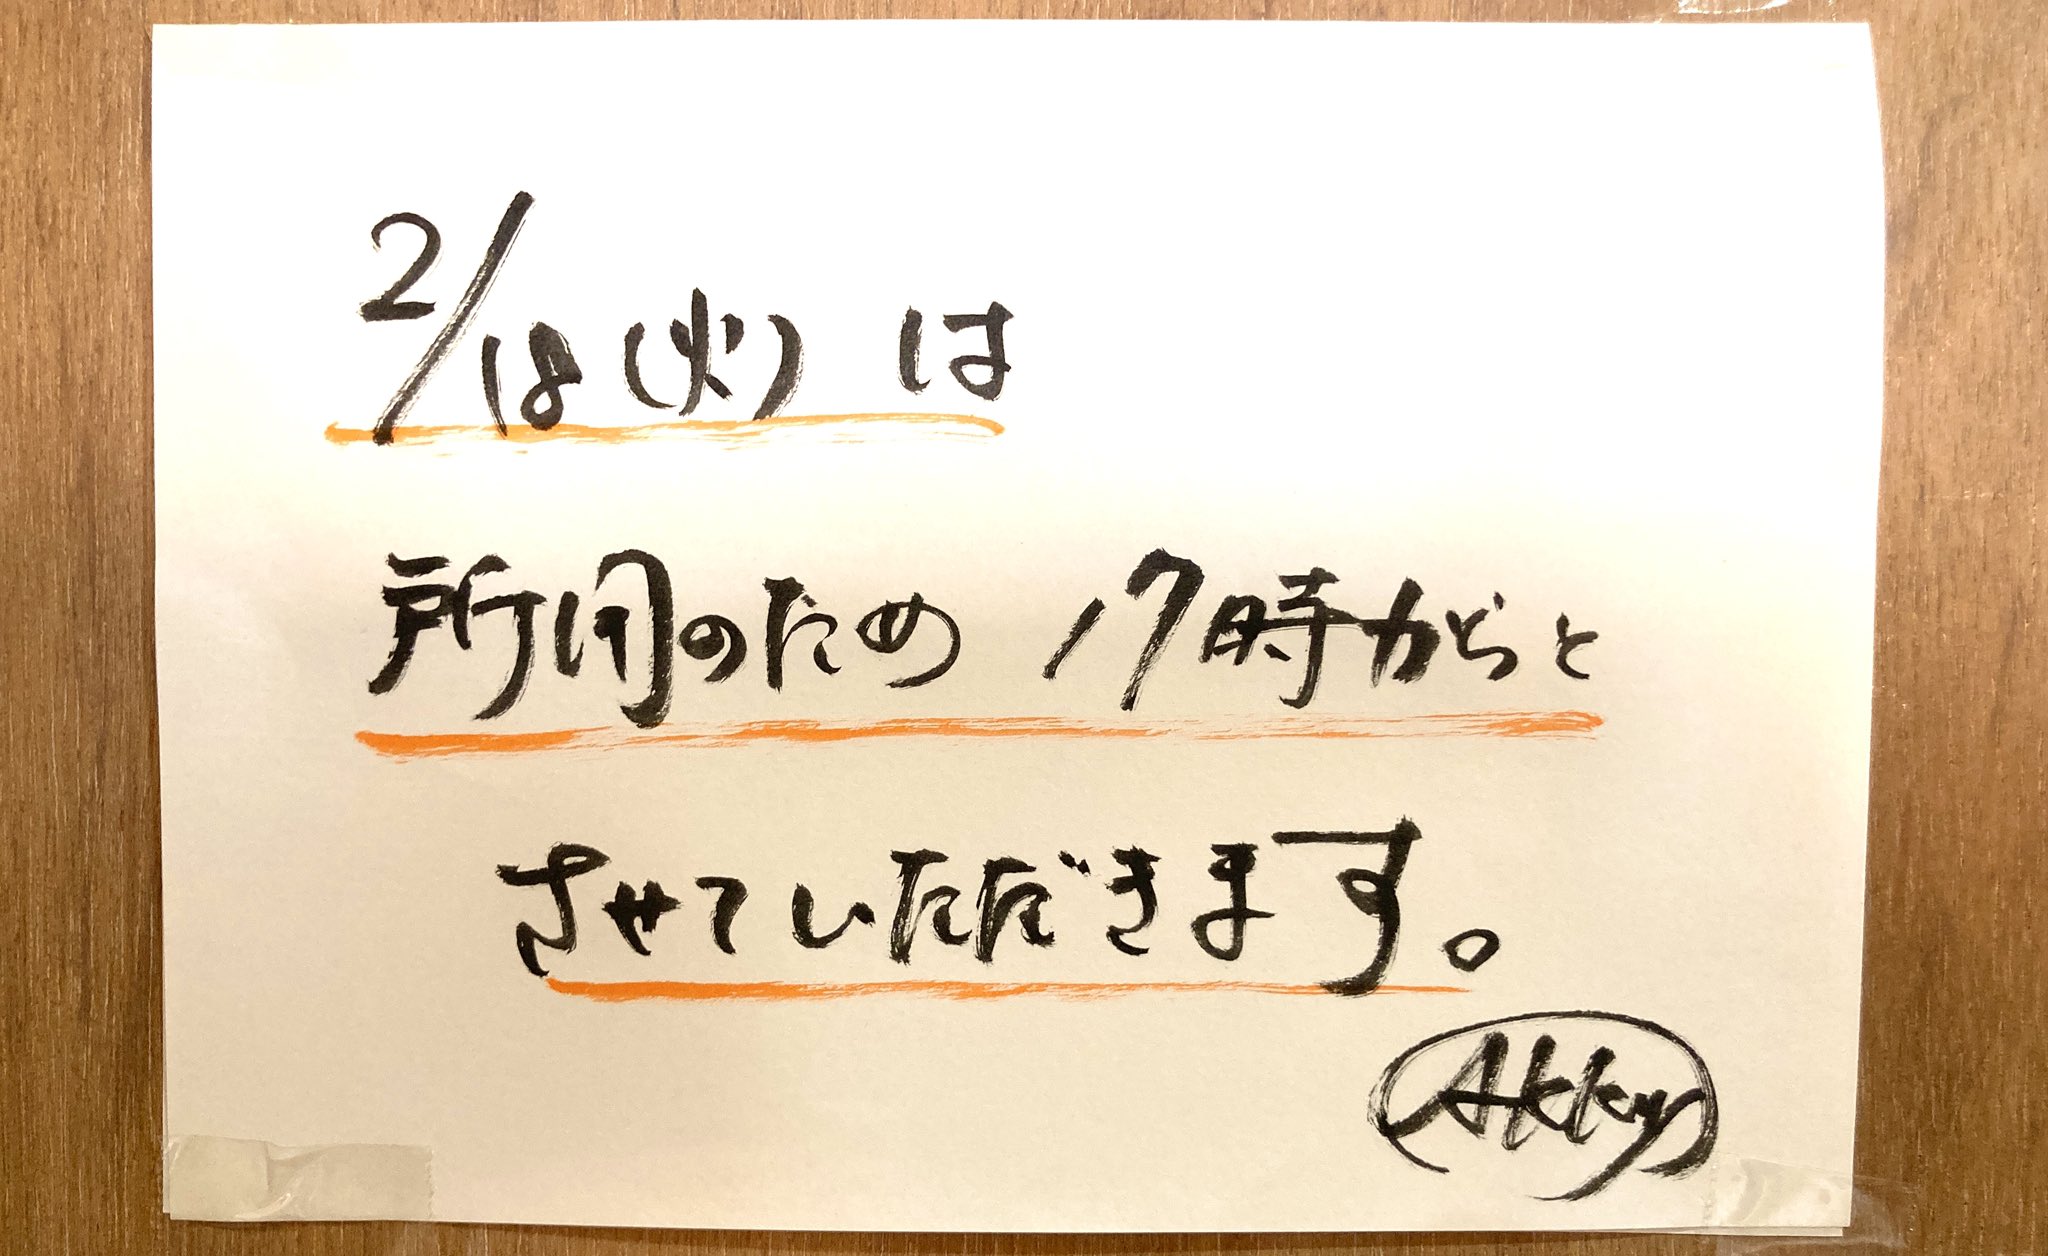 2/18(火) は
所用のため 17時からと
させていただきます。
Akky